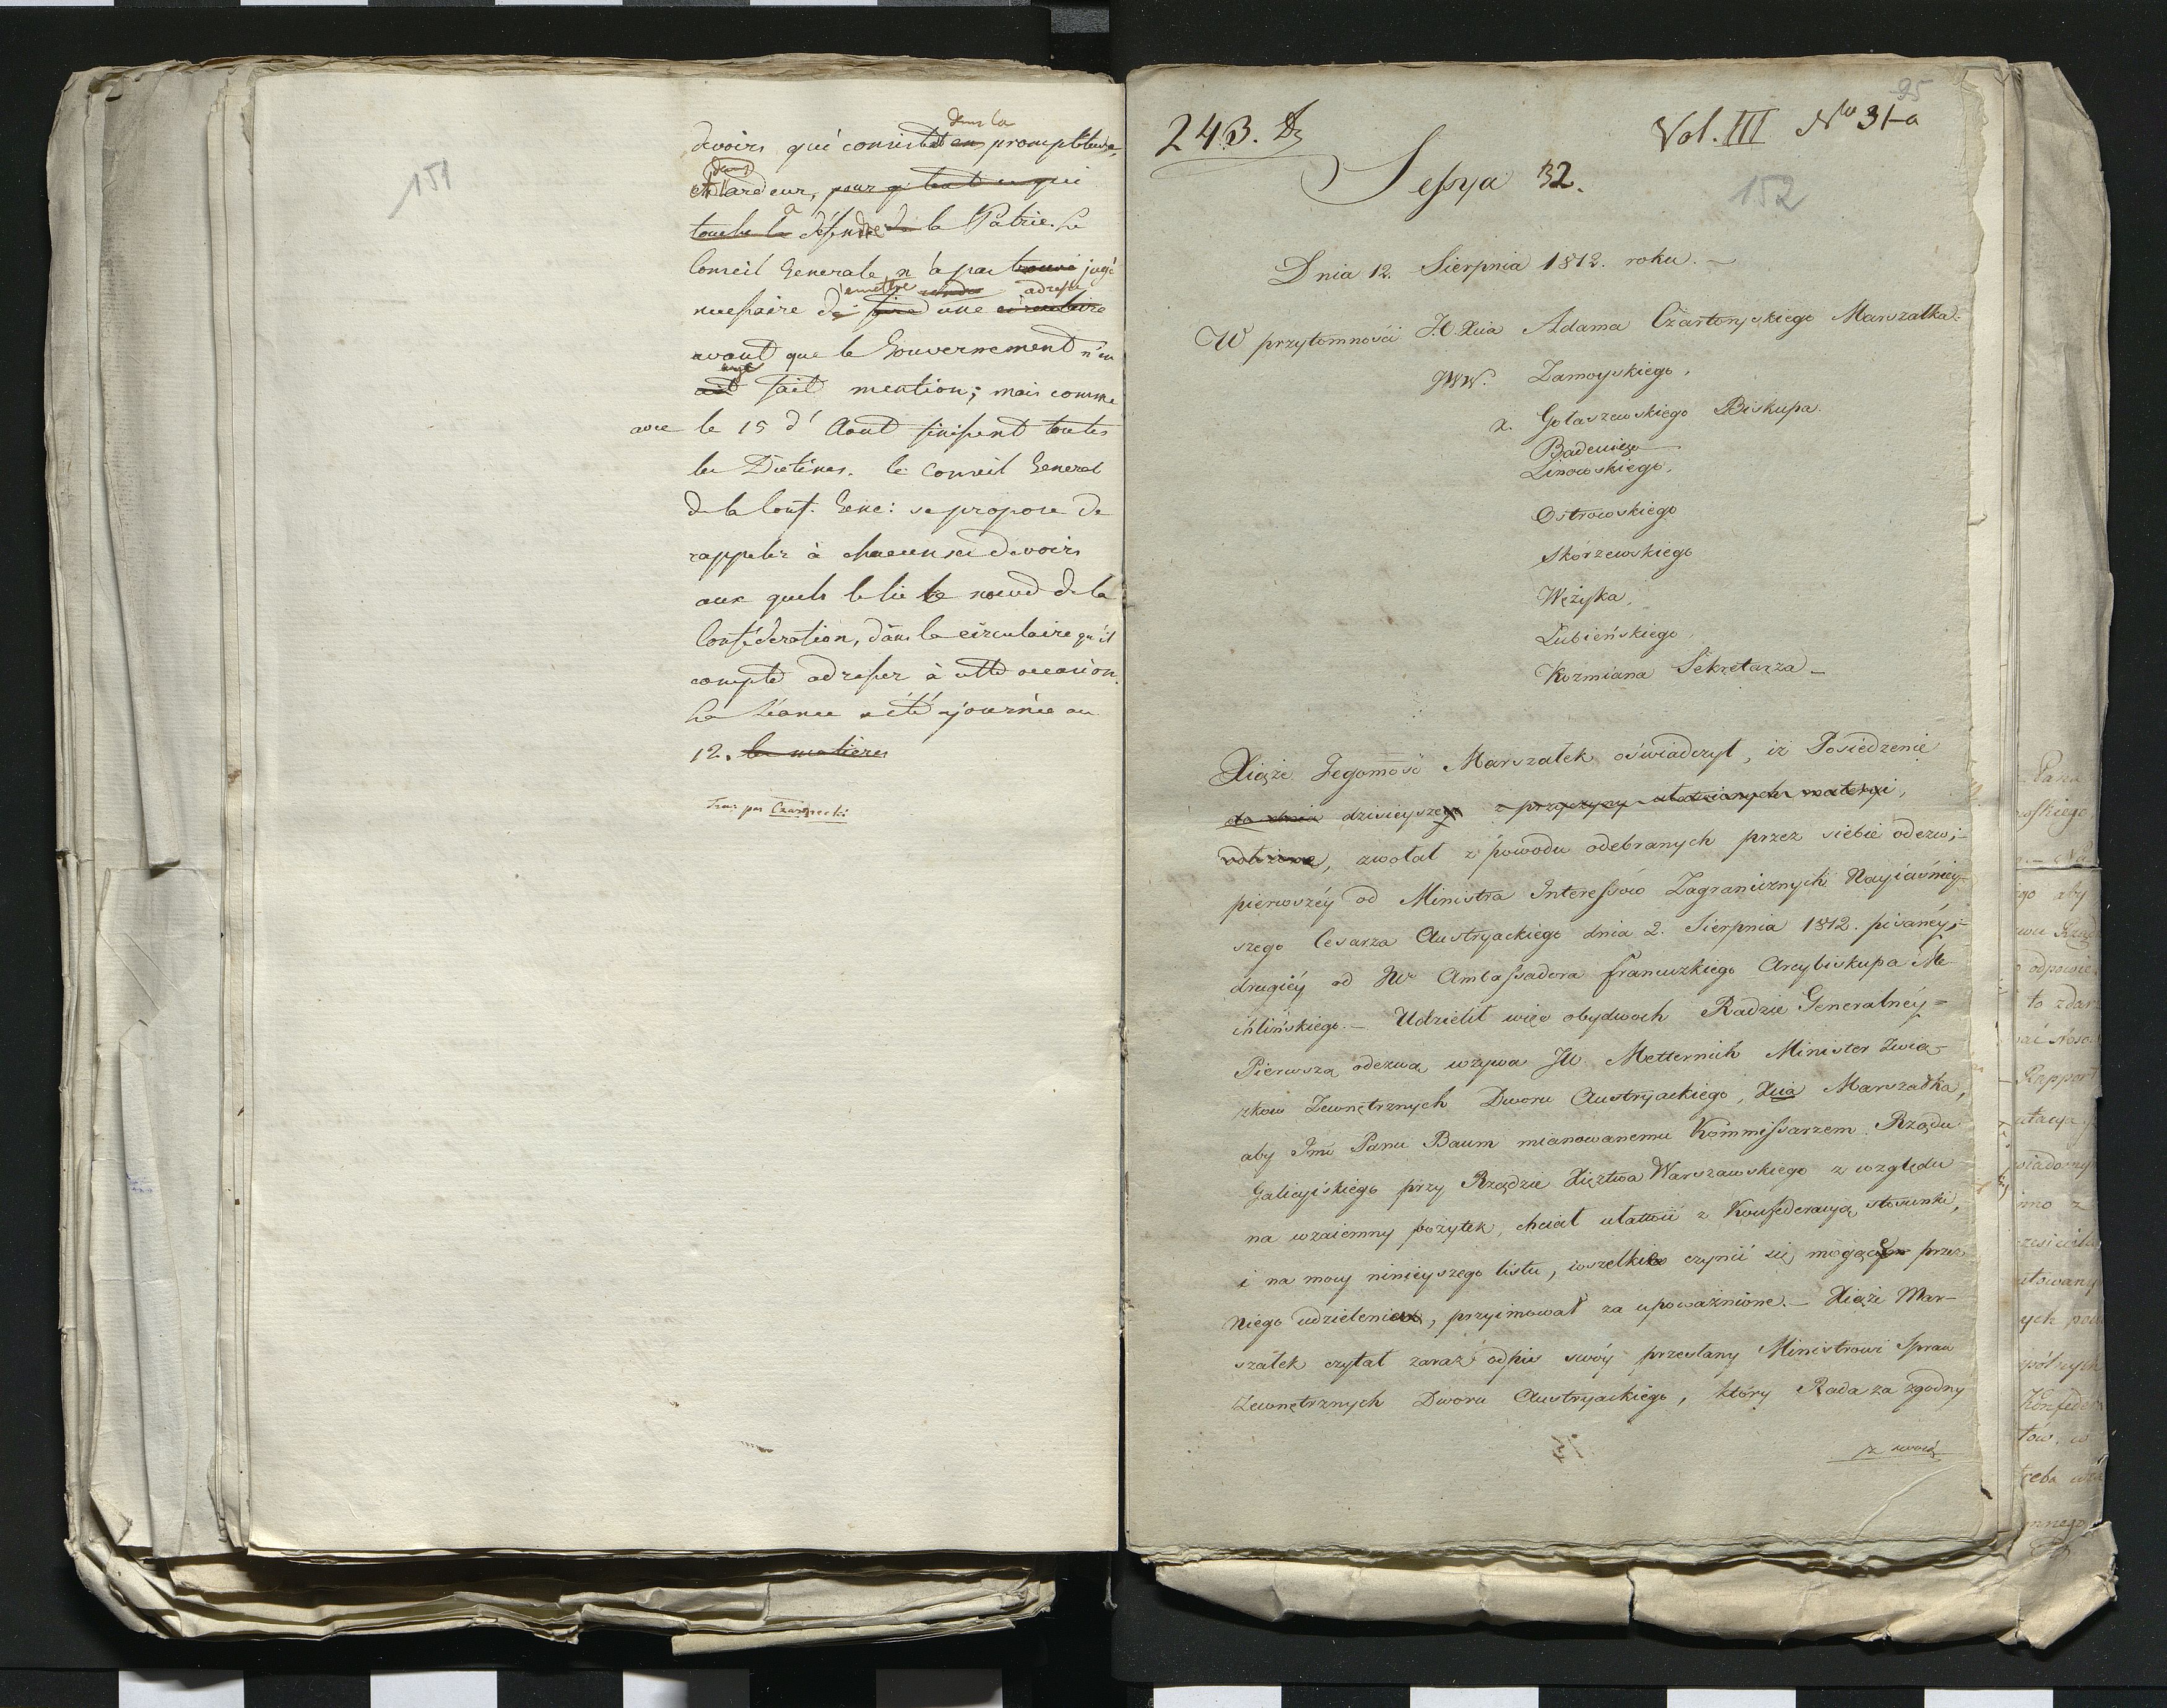 151
dans la
devoirs qui consistent en promptitude,
dans
et l'ardeur, pour qui tout ce qui
touche la à défendre de la Patrie. Le
Conseil Generale n'a pas trouvé jugé
émettre rendre adresse
necessaire de faire une circulaire
avant que le Gouvernement n'en
ait fait mention; mais comme
avec le 15 d'Aout finissent toutes
les Diétines. le Conseil General
de la Conf. Gene: se propose de
rappeler à chacun ses devoirs
aux quels le lie le noeud de la
Confédération, dans la circulaire qu'il
compte adresser à cette occasion.
La Séance a été ajournée au
12. les matières
Trad. par Czarnecki
95
243. Dz
Vol. III No 31-a
Sessya 32.
152
Dnia 12. Sierpnia 1812. roku. –
W przytomności JO. Xcia Adama Czartoryskiego Marszałka.
JWW. Zamoyskiego,
X. Gołaszewskiego Biskupa.
Badeniego
Linowskiego,
Ostrowskiego
Skórzewskiego
Wężyka,
Łubieńskiego,
Kozmiana Sekretarza –
Xiąże Jegomość Marszałek oświadczył, iż Posiedzenie
do dnia dzisieyszego z przyczyny ułatwianych materyi,
odłożone, zwołał z powodu odebranych przez siebie odezw;
pierwszéy od Ministra Interessów Zagranicznych Nayiaśniey-
szego Cesarza Austryackiego dnia 2. Sierpnia 1812. pisanéy;
drugiéy od JW Ambassadora francuzkiego Arcybiskupa Me-
chlińskiego. – Udzielił więc obydwoch Radzie Generalnéy =
Pierwszą odezwą wzywa JW. Metternich Minister Zwią-
zkow Zewnętrznych Dworu Austryackiego, Xcia Marszałka,
aby Jmć Panu Baum mianowanemu Kommissarzem Rządu
Galicyiskiego przy Rządzie Xięztwa Warszawskiego z względu
na wzaiemny pożytek, chciał ułatwić z Konfederacyą stosunki,
i na mocy ninieyszego listu, wszelkie czynić się mogące przez
Niego udzielenia, przyimował za upoważnione. – Xiąże Mar-
szałek czytał zaraz odpis swóy przesłany Ministrowi Spraw
Zewnętrznych Dworu Austryackiego, który Rada za zgodny
z swoią